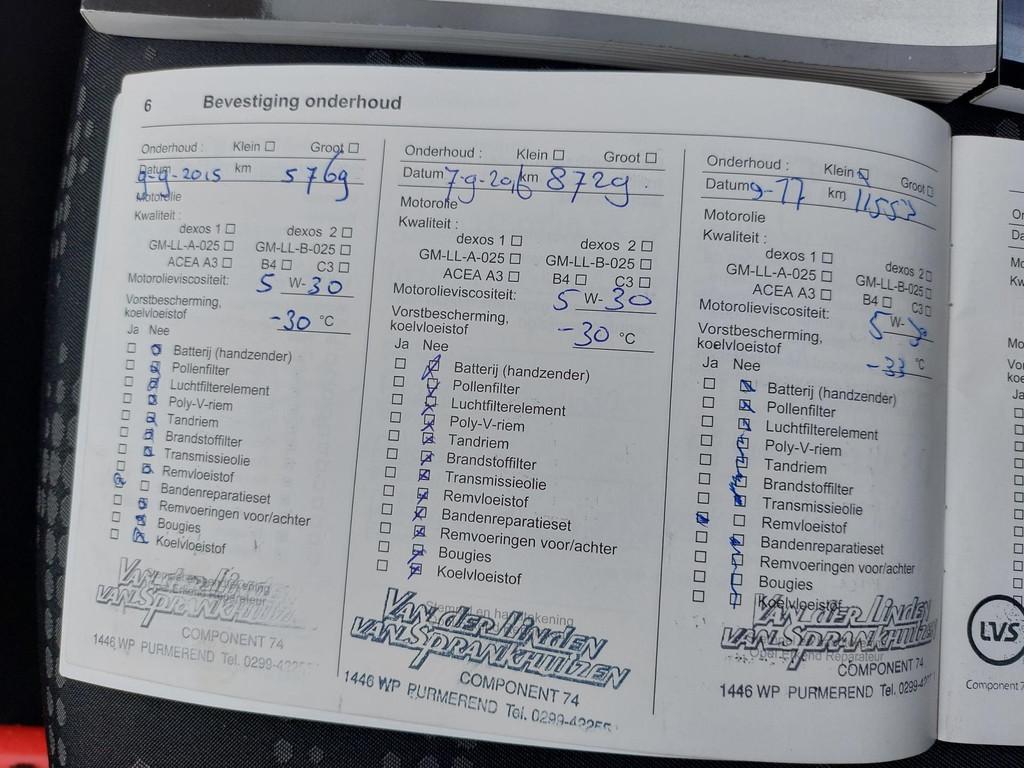 6 Bevestiging onderhoud
Onderhoud : Klein Groot
Datum 9-9-2015 km 5769
Motorolie
Kwaliteit :
dexos 1 dexos 2
GM-LL-A-025 GM-LL-B-025
ACEA A3 B4 C3
Motorolieviscositeit: 5 W-30
Vorstbescherming,
koelvloeistof -30 °C
Ja Nee
Batterij (handzender)
Pollenfilter
Luchtfilterelement
Poly-V-riem
Tandriem
Brandstoffilter
Transmissieolie
Remvloeistof
Bandenreparatieset
Remvoeringen voor/achter
Bougies
Koelvloeistof
VAN DER Linden
VAN SPRANKHUIZEN
COMPONENT 74
1446 WP PURMEREND Tel. 0299-4225
Onderhoud : Klein Groot
Datum 7-9-2016 km 8729
Motorolie
Kwaliteit :
dexos 1 dexos 2
GM-LL-A-025 GM-LL-B-025
ACEA A3 B4 C3
Motorolieviscositeit: 5 W-30
Vorstbescherming,
koelvloeistof -30 °C
Ja Nee
Batterij (handzender)
Pollenfilter
Luchtfilterelement
Poly-V-riem
Tandriem
Brandstoffilter
Transmissieolie
Remvloeistof
Bandenreparatieset
Remvoeringen voor/achter
Bougies
Koelvloeistof
Stempel en handtekening
VAN DER Linden
VAN SPRANKHUIZEN
COMPONENT 74
1446 WP PURMEREND Tel. 0299-42255
Onderhoud : Klein Groot
Datum 9-17 km 11553
Motorolie
Kwaliteit :
dexos 1 dexos 2
GM-LL-A-025 GM-LL-B-025
ACEA A3 B4 C3
Motorolieviscositeit: 5 W-30
Vorstbescherming,
koelvloeistof -33 °C
Ja Nee
Batterij (handzender)
Pollenfilter
Luchtfilterelement
Poly-V-riem
Tandriem
Brandstoffilter
Transmissieolie
Remvloeistof
Bandenreparatieset
Remvoeringen voor/achter
Bougies
Koelvloeistof
VAN DER Linden
VAN SPRANKHUIZEN
Opel Erkend Reparateur
COMPONENT 74
1446 WP PURMEREND Tel. 0299-4
LVS
Component 7